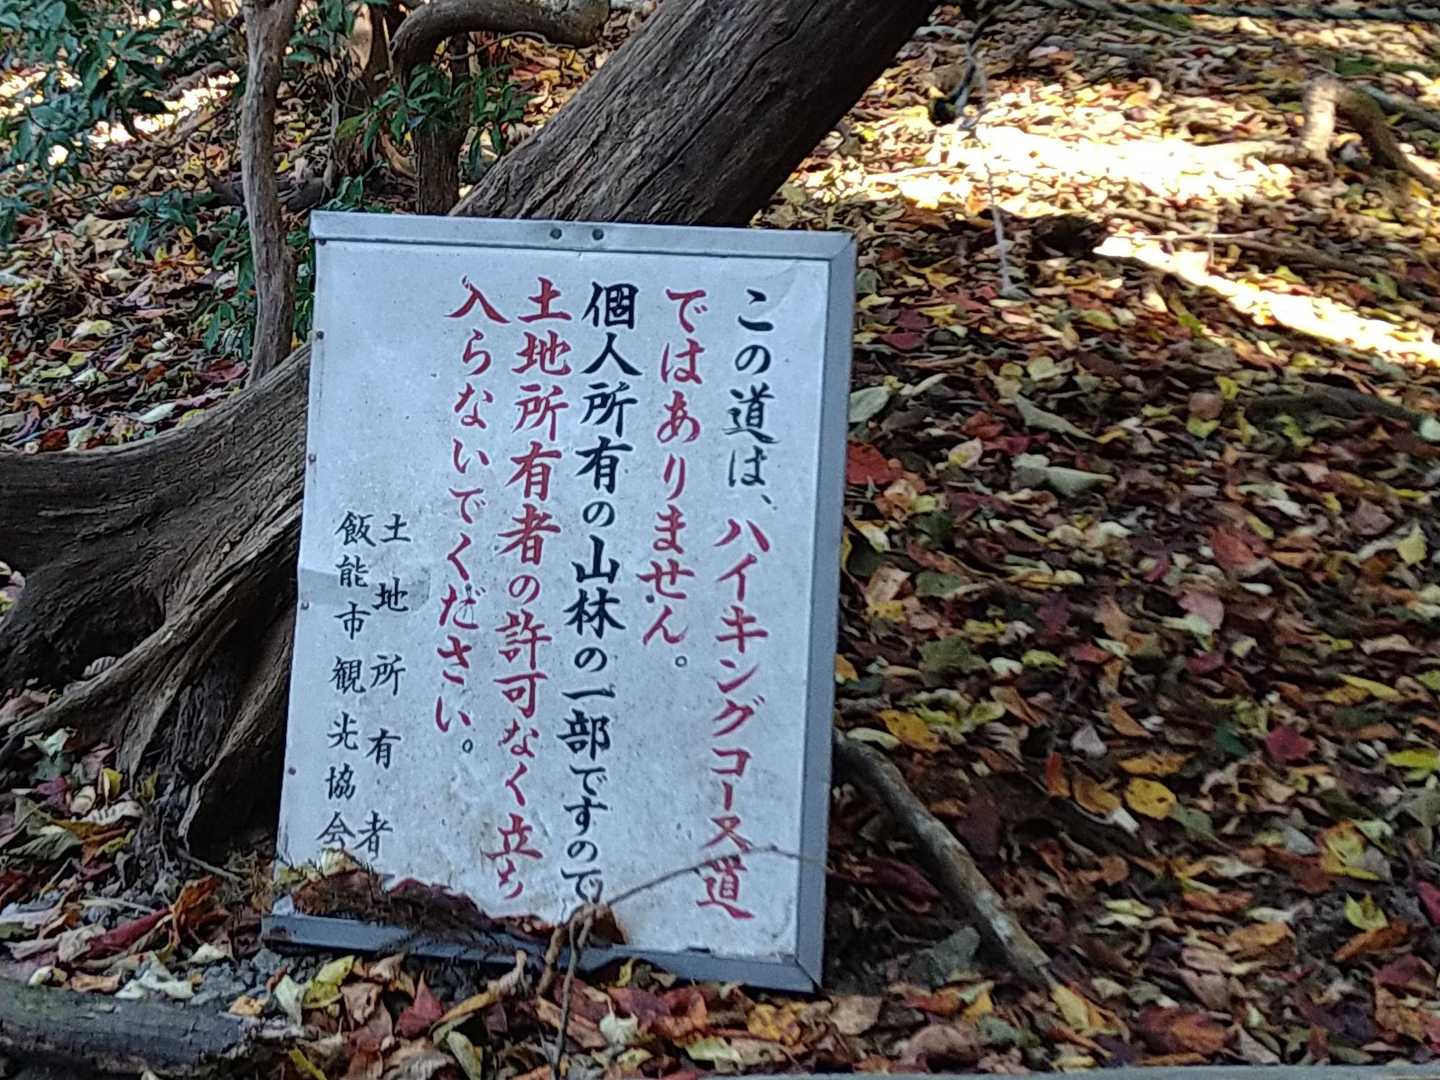 この道は、ハイキングコース道
ではありません。
個人所有の山林の一部ですので
土地所有者の許可なく立ち
入らないでください。
土地所有者
飯能市観光協会